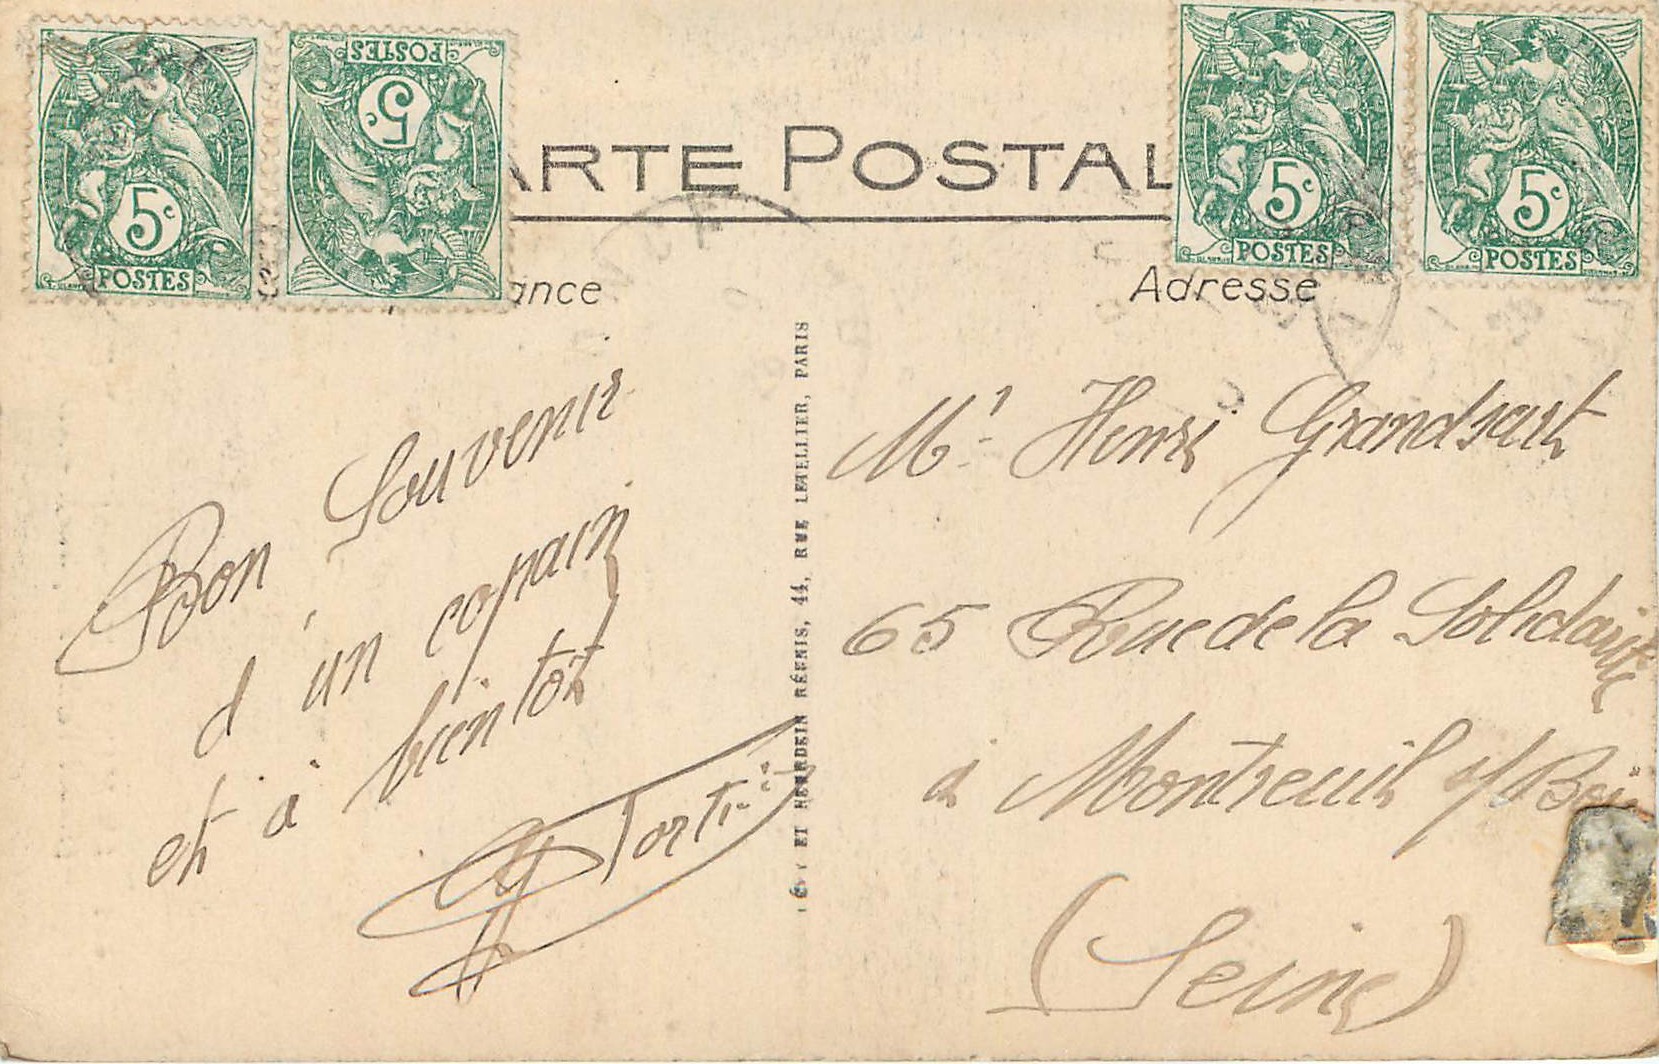 5c
POSTES
POSTES
5c
5c
POSTES
5c
POSTES
ARTE POSTAL
ance
Adresse
Bon Souvenir
d'un copain
et à bientôt
LÉVY ET NEURDEIN RÉUNIS, 44, RUE LETELLIER, PARIS
Mr Henri Grandsart
65 Rue de la Solidarité
à Montreuil s/Bois
(Seine)